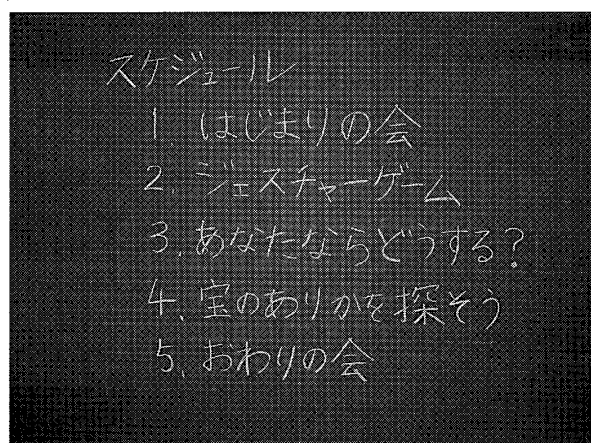 スケジュール
1. はじまりの会
2. ジェスチャーゲーム
3. あなたならどうする?
4. 宝のありかを探そう
5. おわりの会